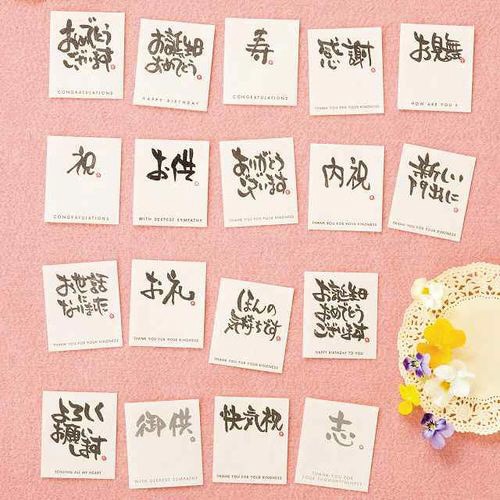 おめでとう
ございます
CONGRATULATIONS
お誕生日
おめでとう
HAPPY BIRTHDAY
寿
CONGRATULATIONS
感謝
THANK YOU FOR YOUR KINDNESS
お見舞
HOW ARE YOU ?
祝
CONGRATULATIONS
お供
WITH DEEPEST SYMPATHY
ありがとう
ございます
THANK YOU FOR YOUR KINDNESS
内祝
THANK YOU FOR YOUR KINDNESS
新しい
門出に
THANK YOU FOR YOUR KINDNESS
お世話
に
なりました
THANK YOU FOR YOUR KINDNESS
お礼
THANK YOU FOR YOUR KINDNESS
ほんの
気持ちです
THANK YOU FOR YOUR KINDNESS
お誕生日
おめでとう
ございます
HAPPY BIRTHDAY TO YOU
よろしく
お願い
します
SENDING ALL MY HEART
御供
WITH DEEPEST SYMPATHY
快気祝
THANK YOU FOR YOUR KINDNESS
志
THANK YOU FOR
YOUR THOUGHTFULNESS